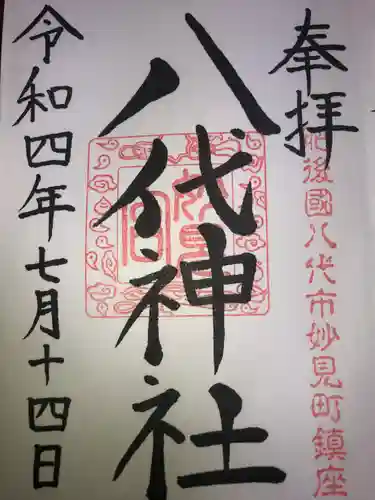 奉拝
肥後國八代市妙見町鎮座
八代神社
妙見宮
令和四年七月十四日